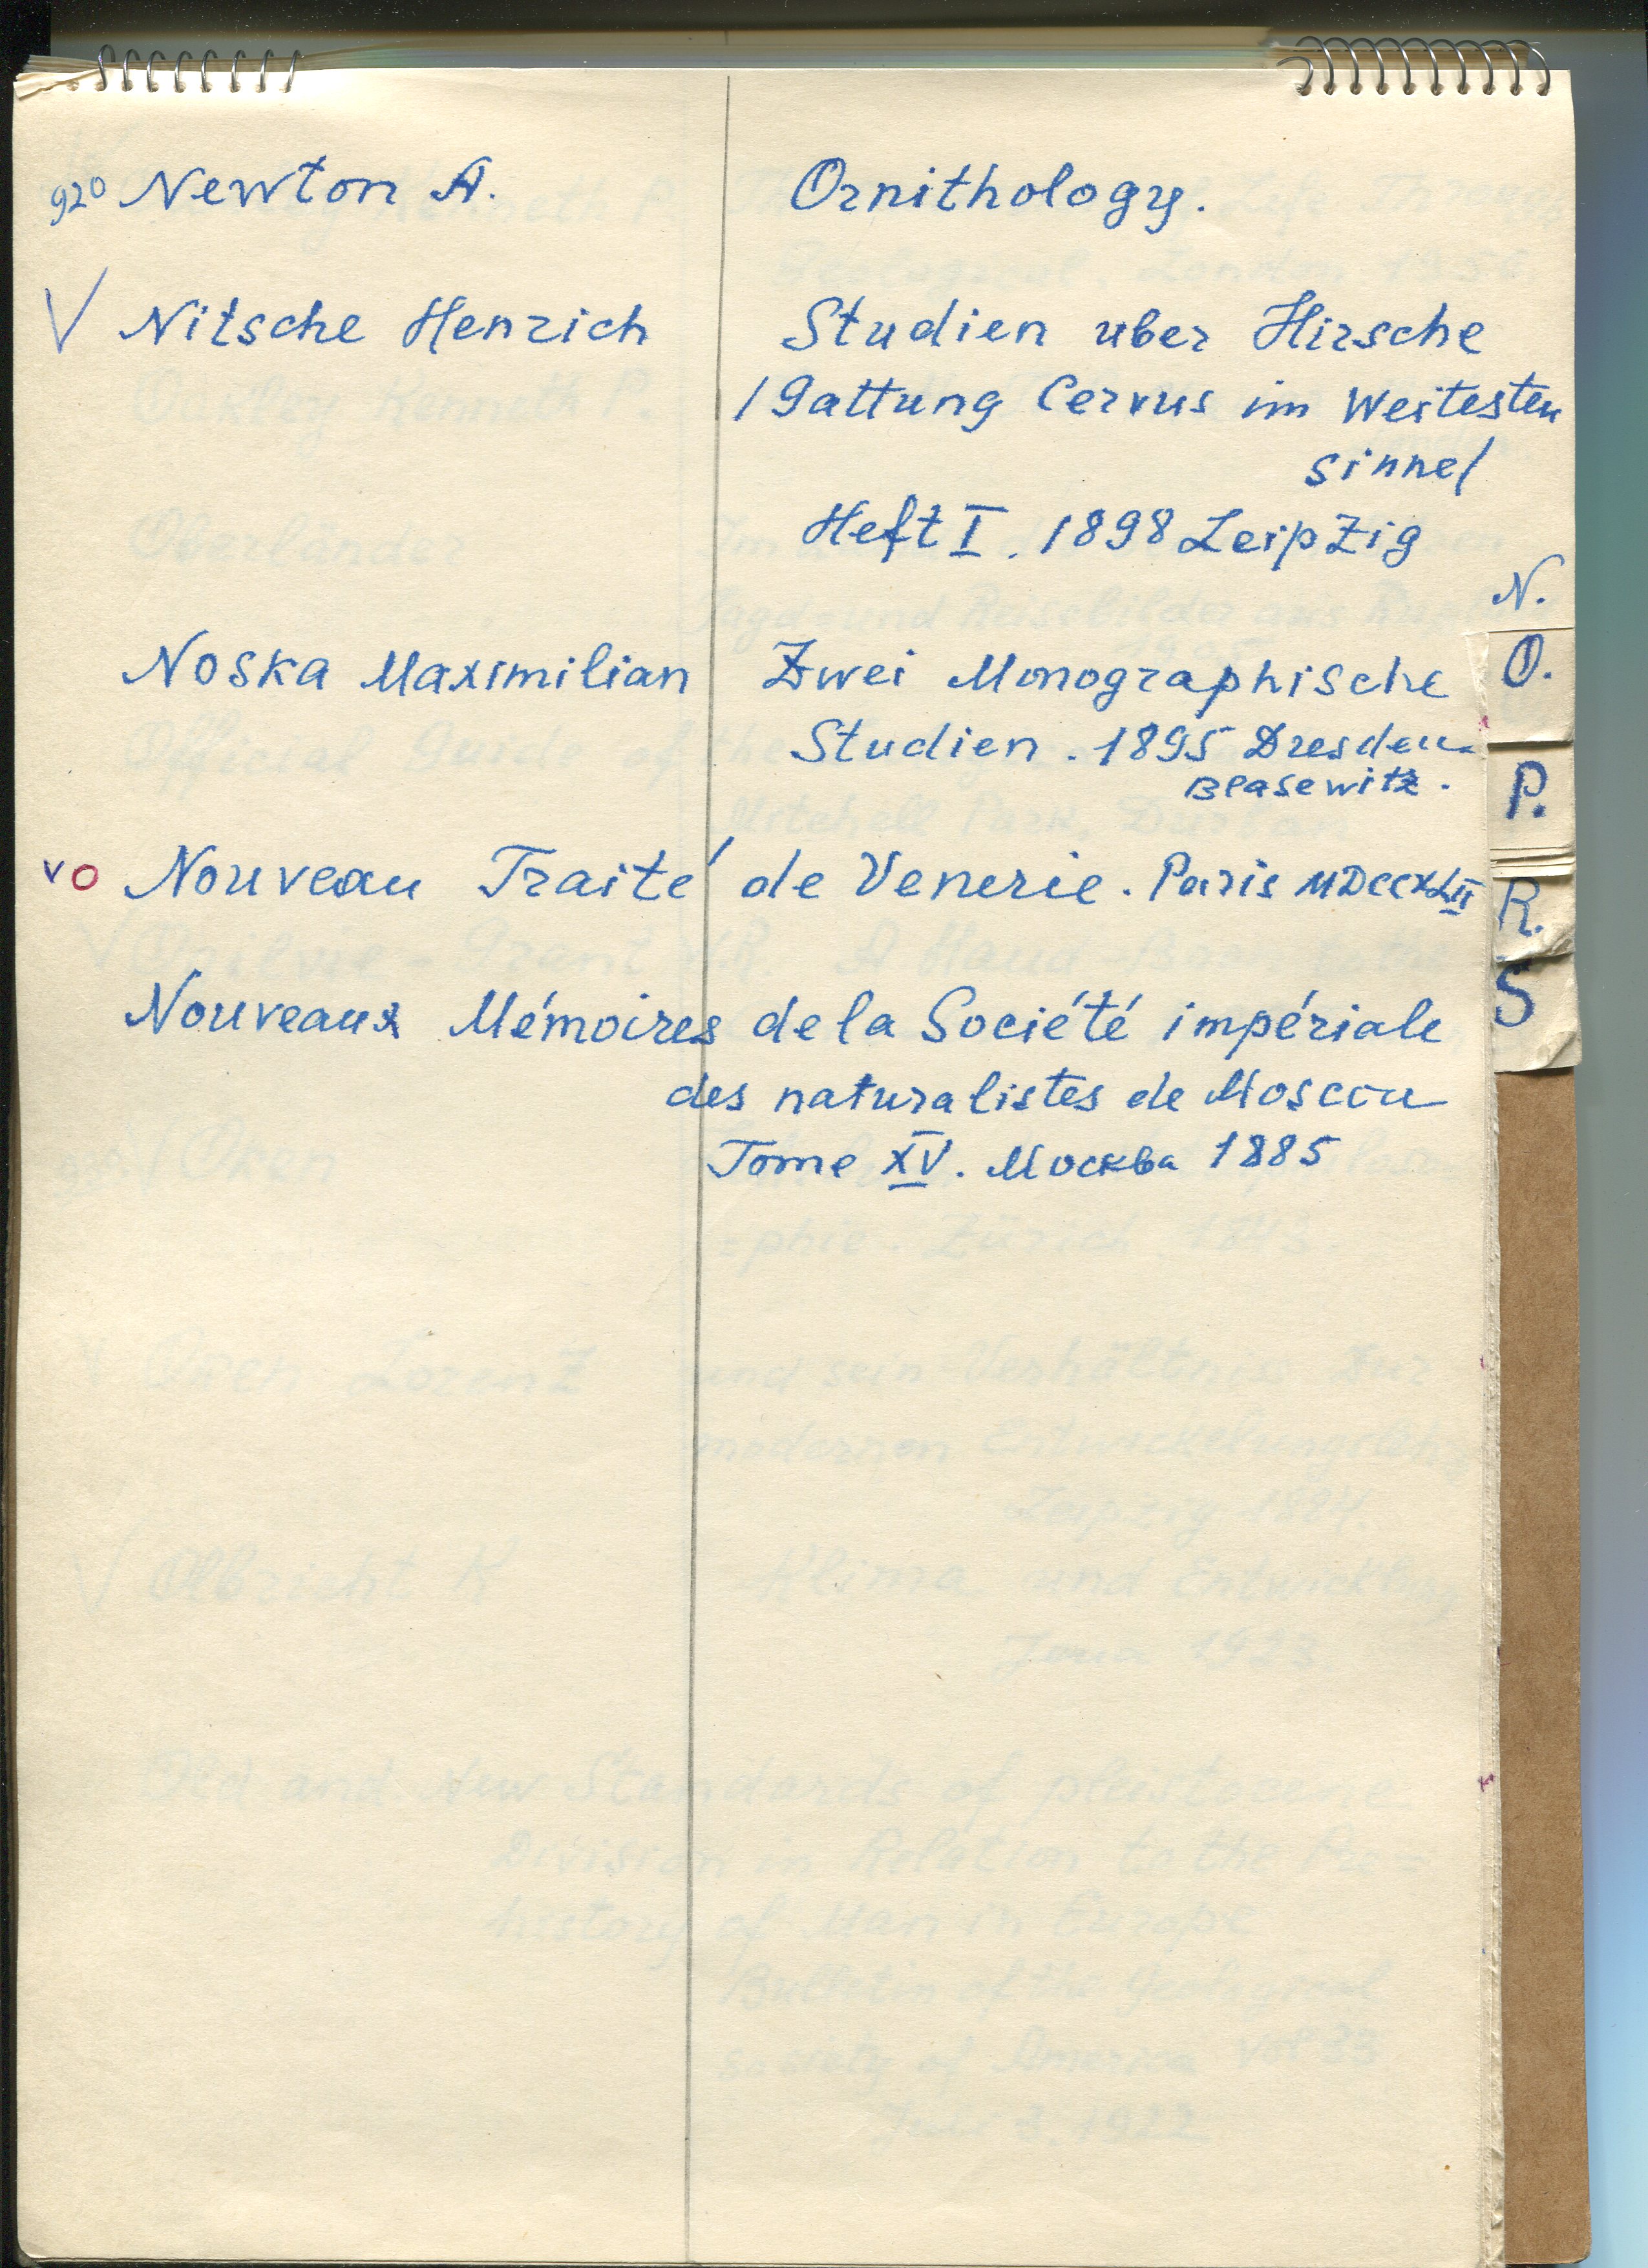 920 Newton A. Ornithology.
V Nitsche Henrich Studien uber Hirsche
/Gattung Cervus im Weitesten
sinne/
Heft I. 1898 Leipzig
N.
Noska Maximilian Zwei Monographische
O.
Studien. 1895 Dresden-
Blasewitz.
P.
vo Nouveau Traité de Venerie. Paris MDCCXLII
R.
S
Nouveaux Mémoires de la Société impériale
des naturalistes de Moscou
Tome XV. Москва 1885